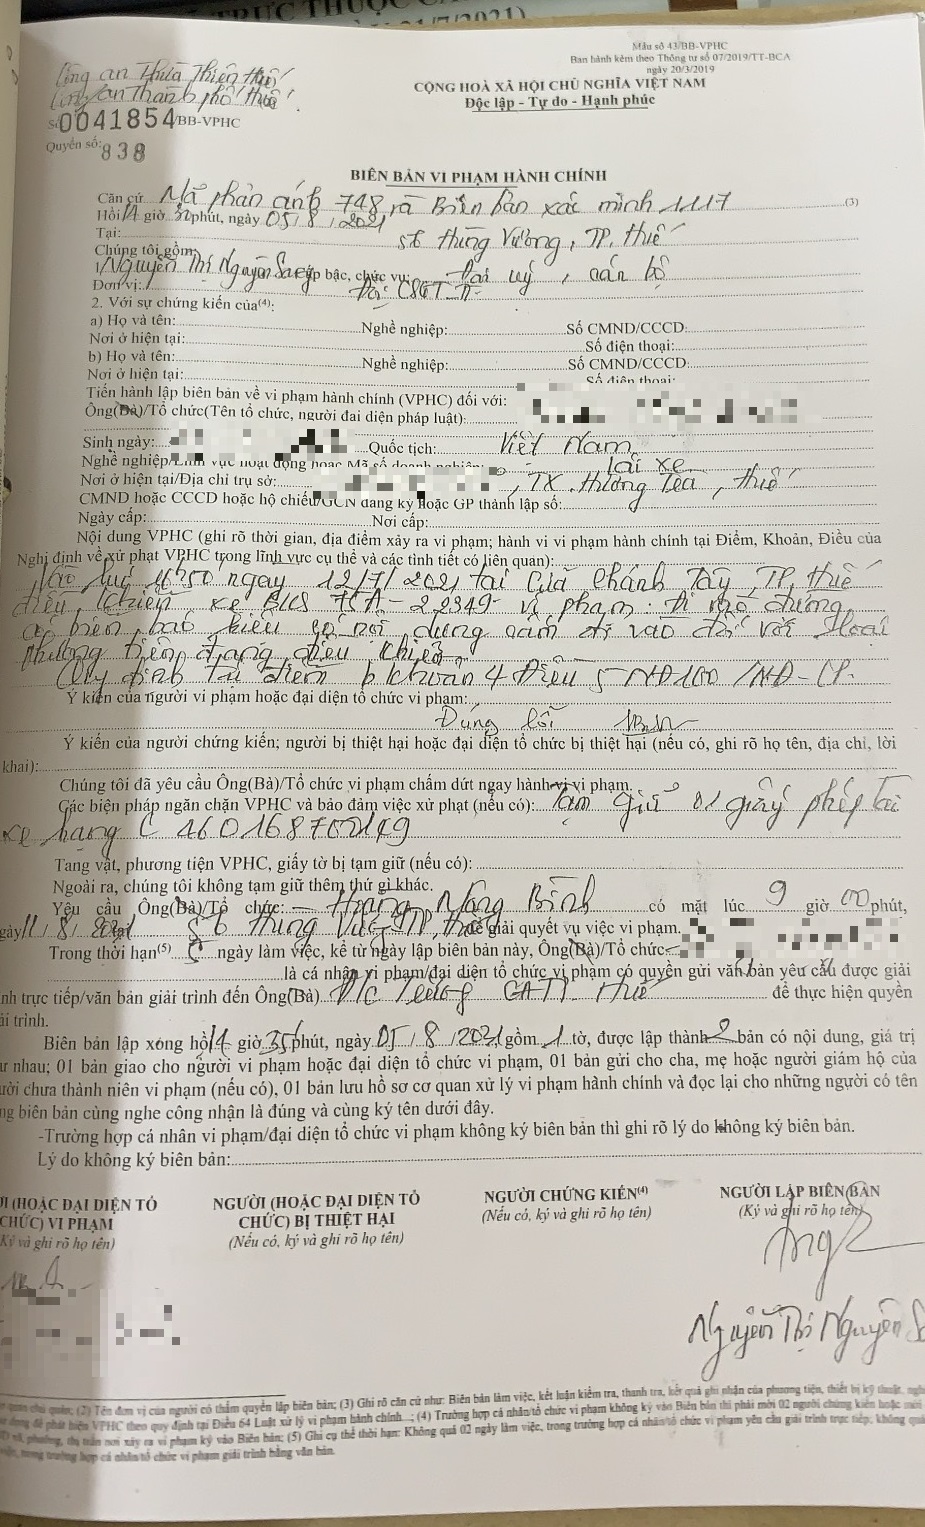 TRỰC THUỘC
/7/2021)
Mẫu số 43/BB-VPHC
Ban hành kèm theo Thông tư số 07/2019/TT-BCA
ngày 20/3/2019
Công an Thừa Thiên Huế
Công an Thành phố Huế
CỘNG HOÀ XÃ HỘI CHỦ NGHĨA VIỆT NAM
Độc lập - Tự do - Hạnh phúc
Số 0041854/BB-VPHC
Quyển số: 838
BIÊN BẢN VI PHẠM HÀNH CHÍNH
Căn cứ Mã phản ánh 748 và Biên bản xác minh 1117 (3)
Hồi 14 giờ phút, ngày 05/8/2021
Tại: 56 Hùng Vương, TP. Huế
Chúng tôi gồm:
1. Nguyễn Thị Nguyên Cấp bậc, chức vụ: Đại uý, cán bộ
Đơn vị: Đội CSGT-TT
2. Với sự chứng kiến của(4):
a) Họ và tên: Nghề nghiệp: Số CMND/CCCD:
Nơi ở hiện tại: Số điện thoại:
b) Họ và tên: Nghề nghiệp: Số CMND/CCCD:
Nơi ở hiện tại: Số điện thoại:
Tiến hành lập biên bản về vi phạm hành chính (VPHC) đối với:
Ông(Bà)/Tổ chức(Tên tổ chức, người đại diện pháp luật):
Sinh ngày: Quốc tịch: Việt Nam
Nghề nghiệp/Lĩnh vực hoạt động hoặc Mã số doanh nghiệp: lái xe
Nơi ở hiện tại/Địa chỉ trụ sở: , TX. Hương Trà, Huế
CMND hoặc CCCD hoặc hộ chiếu/GCN đăng ký hoặc GP thành lập số:
Ngày cấp: Nơi cấp:
Nội dung VPHC (ghi rõ thời gian, địa điểm xảy ra vi phạm; hành vi vi phạm hành chính tại Điểm, Khoản, Điều của
Nghị định về xử phạt VPHC trong lĩnh vực cụ thể và các tình tiết có liên quan):
Vào lúc 16h50 ngày 12/7/2021 tại Cửa Chánh Tây, TP. Huế
điều khiển xe BKS 75A-22349 vi phạm: Đi vào đường
có biển báo hiệu có nội dung cấm đi vào đối với loại
phương tiện đang điều khiển
Quy định tại điểm b khoản 4 Điều 5 NĐ100/NĐ-CP.
Ý kiến của người vi phạm hoặc đại diện tổ chức vi phạm:
Đúng lỗi
Ý kiến của người chứng kiến; người bị thiệt hại hoặc đại diện tổ chức bị thiệt hại (nếu có, ghi rõ họ tên, địa chỉ, lời
khai):
Chúng tôi đã yêu cầu Ông(Bà)/Tổ chức vi phạm chấm dứt ngay hành vi vi phạm.
Các biện pháp ngăn chặn VPHC và bảo đảm việc xử phạt (nếu có): Tạm giữ 01 giấy phép lái
xe hạng C 460168702149
Tang vật, phương tiện VPHC, giấy tờ bị tạm giữ (nếu có):
Ngoài ra, chúng tôi không tạm giữ thêm thứ gì khác.
Yêu cầu Ông(Bà)/Tổ chức: Hoàng Năng Bình có mặt lúc 9 giờ 00 phút,
gày 11/8/2021 tại 56 Hùng Vương, TP, Huế để giải quyết vụ việc vi phạm.
Trong thời hạn(5) 5 ngày làm việc, kể từ ngày lập biên bản này, Ông(Bà)/Tổ chức
là cá nhân vi phạm/đại diện tổ chức vi phạm có quyền gửi văn bản yêu cầu được giải
nh trực tiếp/văn bản giải trình đến Ông(Bà) Trưởng CATP Huế để thực hiện quyền
ải trình.
Biên bản lập xong hồi 14 giờ 35 phút, ngày 05/8/2021 gồm 1 tờ, được lập thành 2 bản có nội dung, giá trị
ư nhau; 01 bản giao cho người vi phạm hoặc đại diện tổ chức vi phạm, 01 bản gửi cho cha, mẹ hoặc người giám hộ của
ười chưa thành niên vi phạm (nếu có), 01 bản lưu hồ sơ cơ quan xử lý vi phạm hành chính và đọc lại cho những người có tên
ng biên bản cùng nghe công nhận là đúng và cùng ký tên dưới đây.
-Trường hợp cá nhân vi phạm/đại diện tổ chức vi phạm không ký biên bản thì ghi rõ lý do không ký biên bản.
Lý do không ký biên bản:
I (HOẶC ĐẠI DIỆN TỔ CHỨC) VI PHẠM
Ký và ghi rõ họ tên)
NGƯỜI (HOẶC ĐẠI DIỆN TỔ CHỨC) BỊ THIỆT HẠI
(Nếu có, ký và ghi rõ họ tên)
NGƯỜI CHỨNG KIẾN(4)
(Nếu có, ký và ghi rõ họ tên)
NGƯỜI LẬP BIÊN BẢN
(Ký và ghi rõ họ tên)
Nguyễn Thị Nguyên
quan chủ quản; (2) Tên đơn vị của người có thẩm quyền lập biên bản; (3) Ghi rõ căn cứ như: Biên bản làm việc, kết luận kiểm tra, thanh tra, kết quả ghi nhận của phương tiện, thiết bị kỹ thuật, ngh
dụng để phát hiện VPHC theo quy định tại Điều 64 Luật xử lý vi phạm hành chính...; (4) Trường hợp cá nhân/tổ chức vi phạm không ký vào Biên bản thì phải mời 02 người chứng kiến hoặc mời
xã, phường, thị trấn nơi xảy ra vi phạm ký vào Biên bản; (5) Ghi cụ thể thời hạn: Không quá 02 ngày làm việc, trong trường hợp cá nhân/tổ chức vi phạm yêu cầu giải trình trực tiếp; không quá
việc, trong trường hợp cá nhân/tổ chức vi phạm giải trình bằng văn bản.